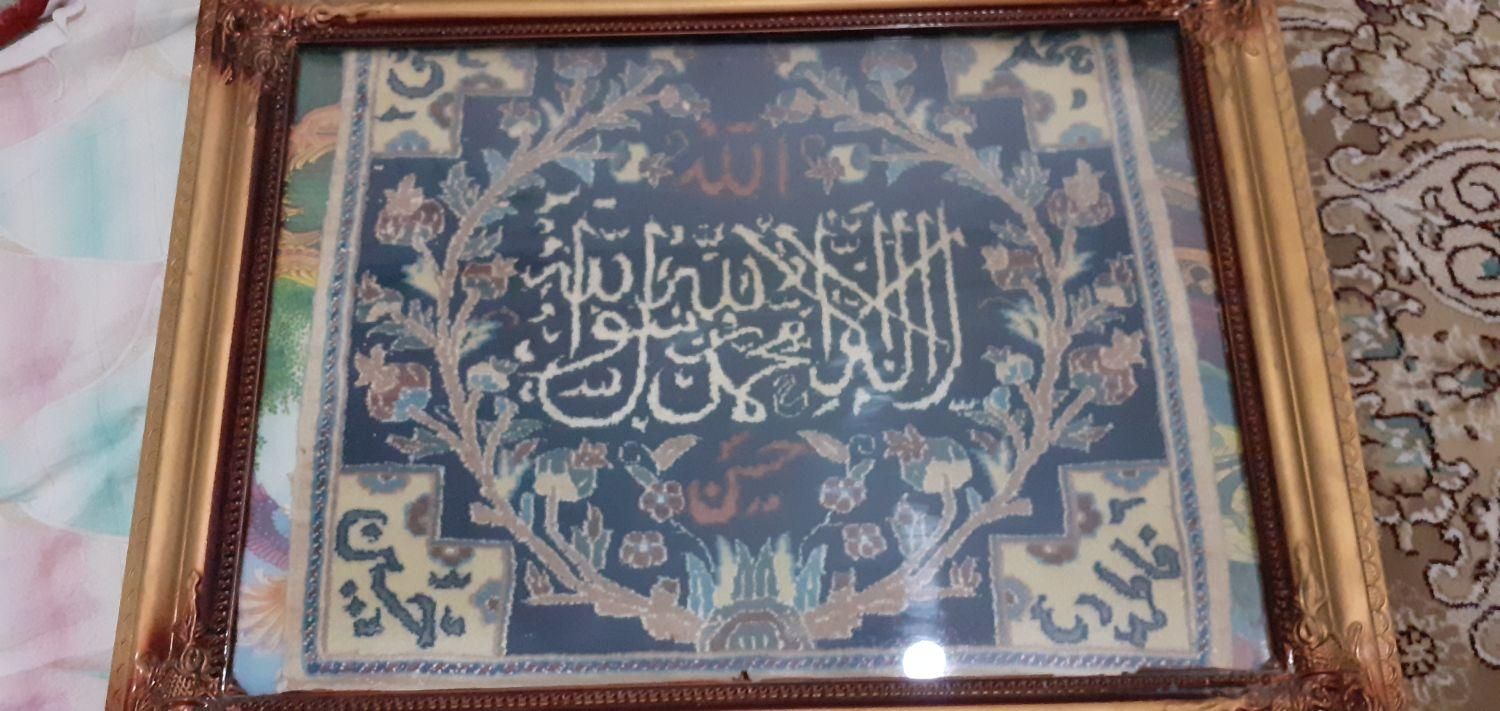 محمد
علی
الله
لا اله الا الله محمد رسول الله
حسین
فاطمه
حسن